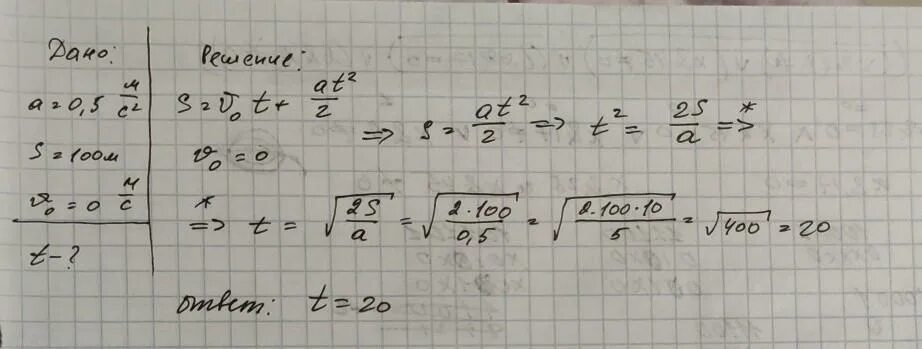 Дано:
a = 0,5 м/с²
S = 100м
v₀ = 0 м/с
t – ?
Решение:
S = v₀ t + at²/2 => S = at²/2 => t² = 2S/a =>*
v₀ = 0
*=> t = √(2S/a) = √(2·100/0,5) = √(2·100·10/5) = √400 = 20
Ответ: t = 20